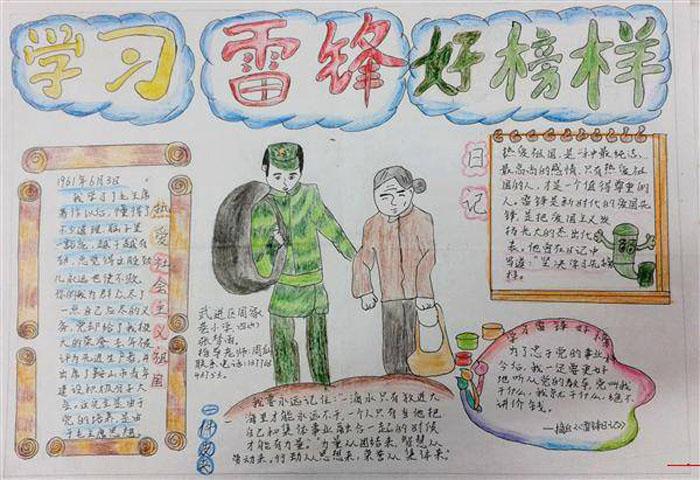 学习 雷锋 好榜样
1961年6月3日
我学习了毛主席
著作以后，懂得了
不少道理，脑子里
一豁亮，越干越有
劲，总觉得这股劲
儿永远也使不败。
一点自己应尽的义
务，党却给了我极
大的荣誉，去年被
评为先进生产者，并
出席了鞍山市青年
建设积极分子大
会。这完全是由于
党的培养，是由
于毛主席思想
热爱社会主义祖国
武进区周家
张梦雨
指导老师：周
联系电话：
我要永远记住："一滴水只有放进大
海里才能永远不干，一个人只有当他把
自己和集体事业融合一起的时候
才能有力量。"力量从团结来，智慧从
劳动来，行动从思想来，荣誉从集体来。
日记
热爱祖国，是一种最纯洁、
最高尚的感情，只有热爱祖
国的人，才是一个值得尊重的
人。雷锋是新时代的爱国先
锋，是把爱国主义发
扬光大的杰出代
表。他曾在日记中
写道："坚决
学习雷锋好榜样
为了忠于党的事业，
今后，我一定要更好
地听从党的教导，党叫我
干什么，我就干什么，绝不
讲价钱。
——摘自《雷锋日记》